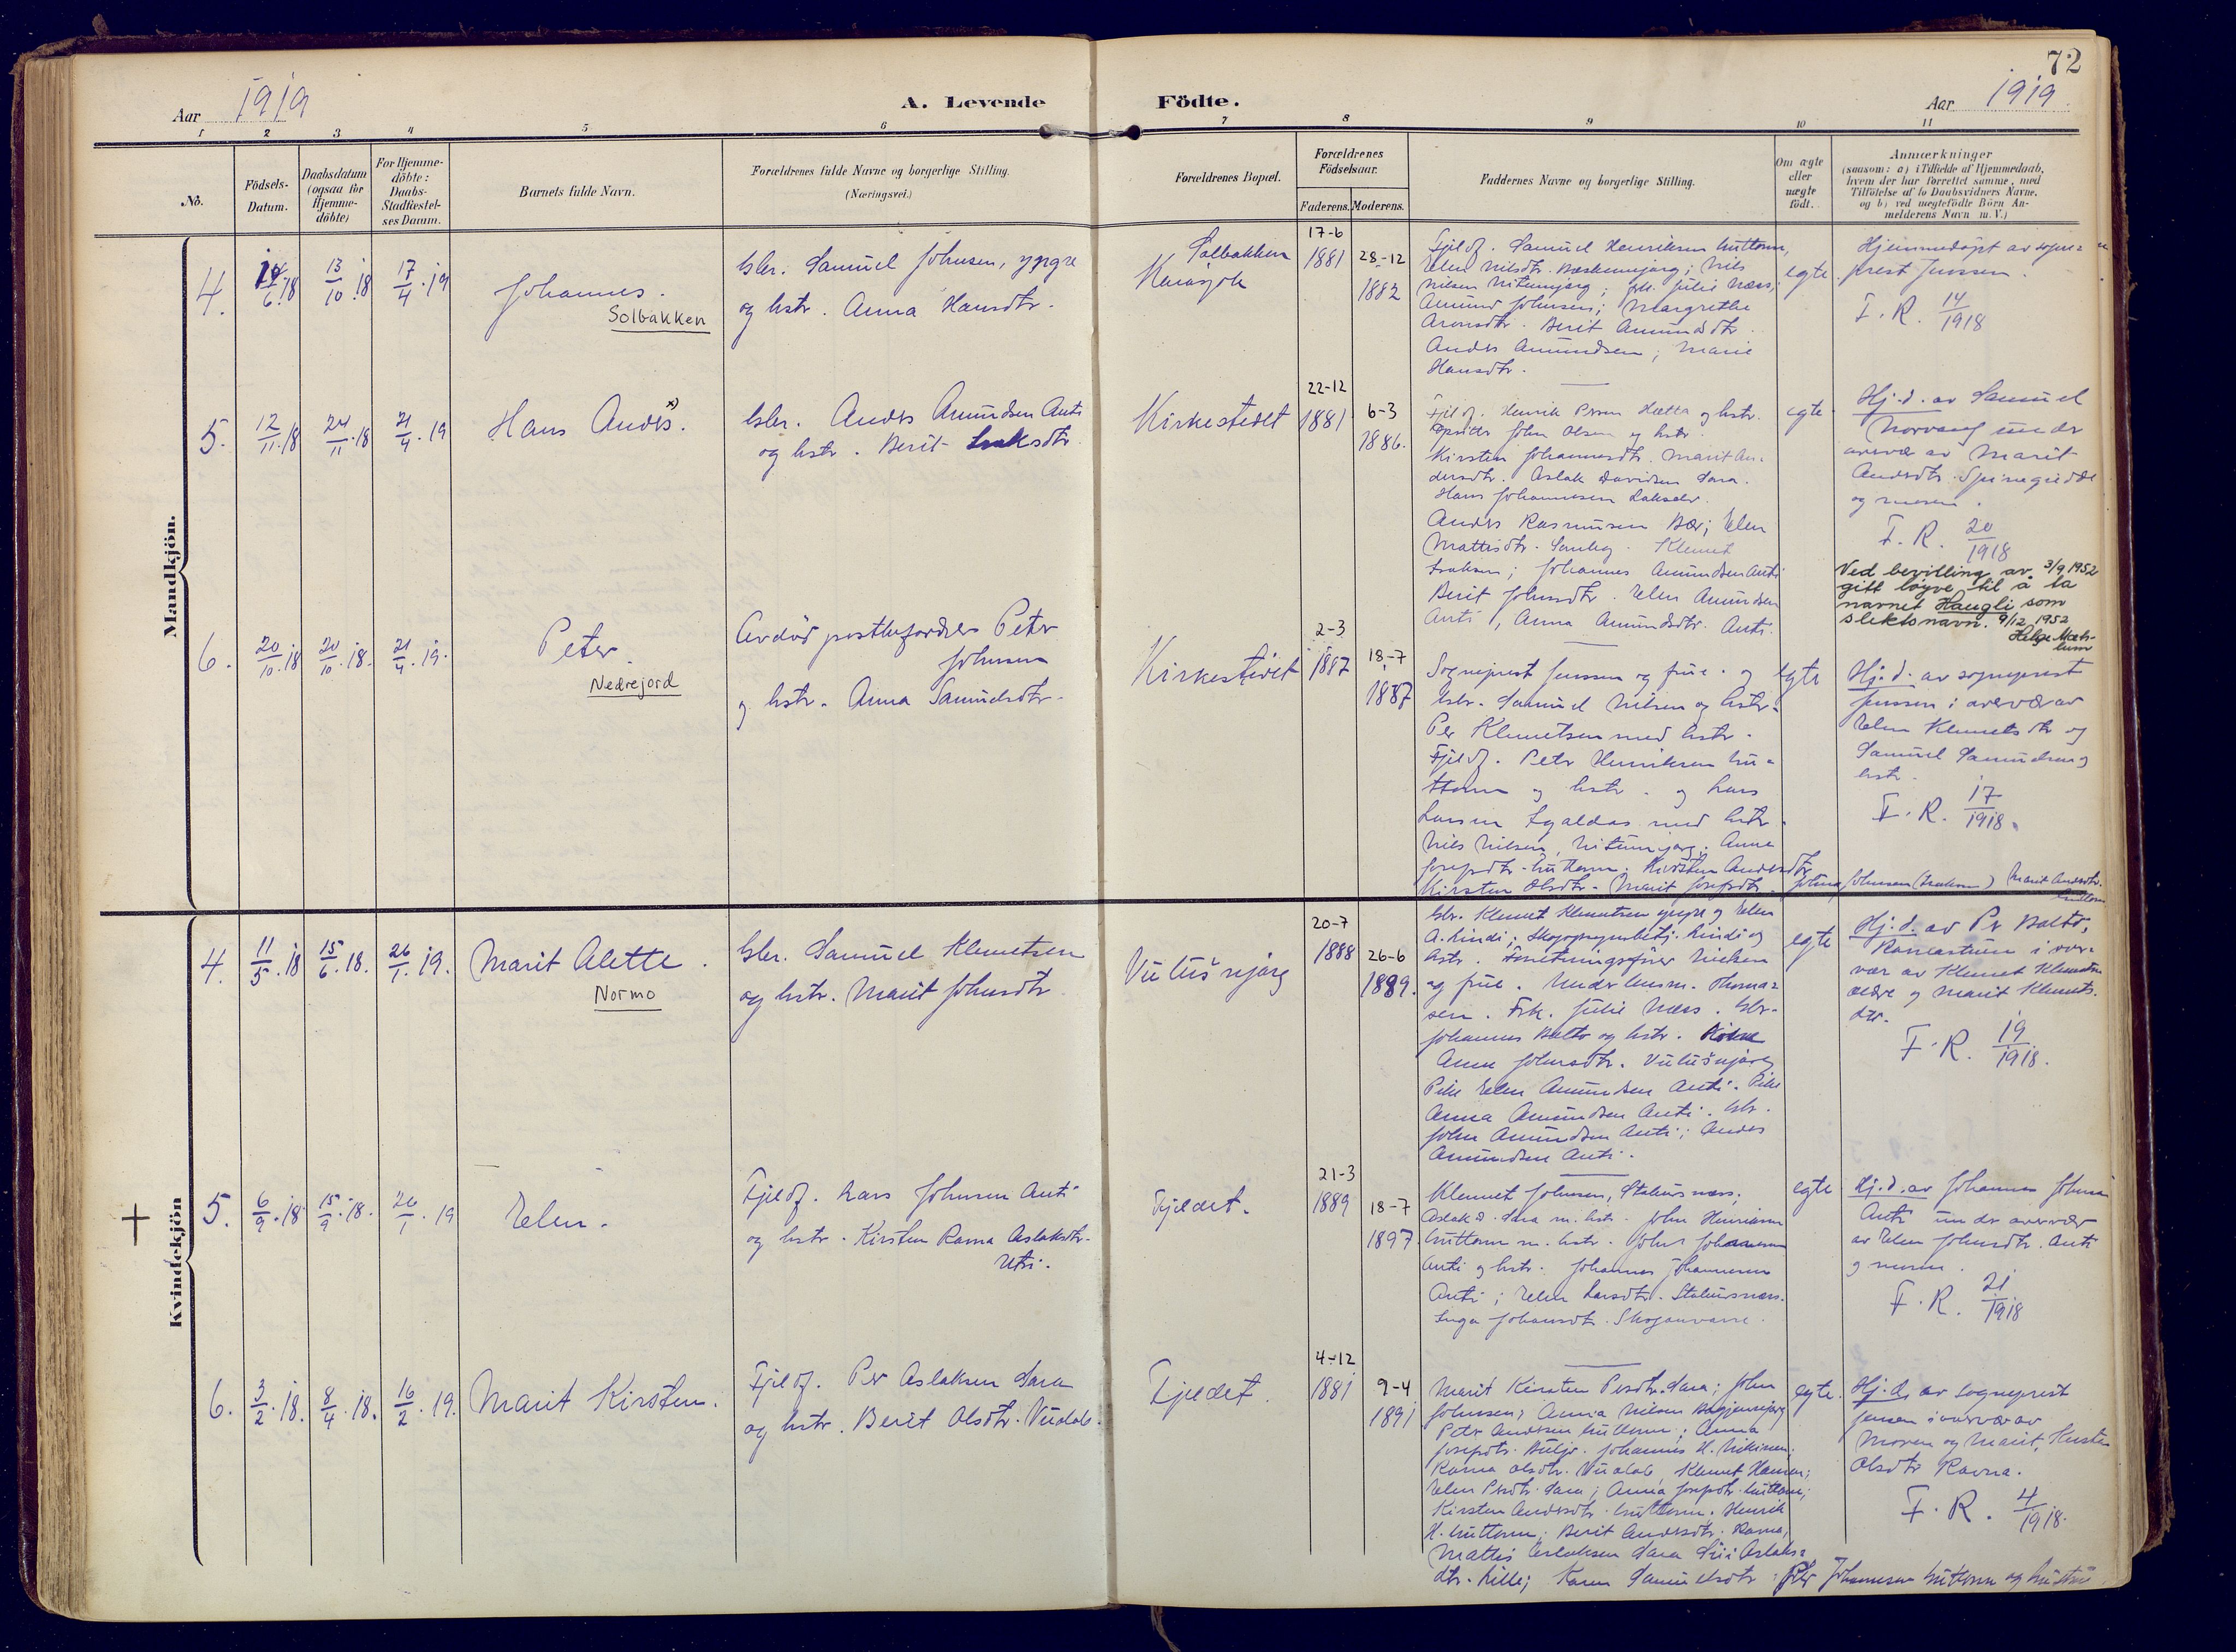 72
Aar 1919
A. Levende
Födte.
Aar 1919.
1 2 3 4 5 6 7 8 9 10 11
No.
Födsels-
Datum.
Daabsdatum
(ogsaa for
Hjemme-
döbte)
For Hjemme-
döbte:
Daabs-
Stadfæstel-
ses Datum.
Barnets fulde Navn.
Forældrenes fulde Navne og borgerlige Stilling.
(Næringsvei.)
Forældrenes Bopæl.
Forældrenes
Födselsaar.
Faderens. Moderens.
Faddernes Navne og borgerlige Stilling.
Om ægte
eller
uægte
födt.
Anmærkninger
(saasom: a) i Tilfælde af Hjemmedaab,
hvem der har forrettet samme, med
Tilföielse af to Daabsvidners Navne.
og b) ved uægtefödte Börn An-
melderens Navn m. V.)
Mandkjön.
4.
6.18
13/10.18
17/4.19
Johannes.
Solbakken
bsbr. Samuel Johnsen, yngre
og hstr. Anna Hansdtr.
Solbakken
Karasjok
17-6
1881
28-12
1882
Fjeldf. Samuel Henriksen Guttorm,
Elen Nilsdtr. ; Nils
Nilsen ; frk. Julie Næss;
Amund Johnsen; Margrethe
Aronsdtr. Berit Amundsdtr.
Anders Amundsen; Marie
Hansdtr.
egte
Hjemmedøpt av sogne=
prest Jenssen.
F. R. 14/1918
5.
12/11.18
24/11.18
21/4.19
Hans Anders. x)
bsbr. Anders Amundsen Anti
og hstr. Berit Isaksdtr.
Kirkestedet
22-12
1881
6-3
1886.
Fjeldf. Henrik Persen Hætta og hstr.
John Olsen og hstr.
Kirsten Johannesdtr. Marit An-
dersdtr. Aslak Davidsen Sara.
Hans Johannesen Lakselv.
Anders Rasmussen Bær; Elen
Mattisdtr. . Klemet
Isaksen; Johannes Amundsen Anti
Berit Johnsdtr. Elen Amundsen
Anti, Anna Amundsdtr. Anti.
egte
Hj.d. av Samuel
Norvang under
overvær av Marit
Andersdtr.
og moren.
F. R. 20/1918
Ved bevilling av 3/9 1952
gitt løyve til å ta
navnet Haugli som
slektsnavn. 9/12 1952
6.
20/10.18
20/10.18.
21/4.19.
Peter.
Nedrejord
Avdød postbefordrer Peter
Johnsen
og hstr. Anna Samuelsdtr.
Kirkestedet
2-3
1887
18-7
1887
Sogneprest Jenssen og frue. og
bsbr. Samuel Nilsen og hstr.
Per Klemetsen med hstr.
Fjeldf. Peter Henriksen Gu=
ttorm og hstr. og Lars
Larsen med hstr.
Nils Nilsen, ; Anna
Josefsdtr. Guttorm; Kirsten Andersdtr.
Kirsten Olsdtr. Marit Josefsdtr. Johnsen (Isaksen) Marit Andersdtr.
Guttorm
egte
Hj.d. av sogneprest
Jenssen i overvær av
Elen Klemetsdtr. og
Samuel Samuelsen og
hstr.
F. R. 17/1918.
Kvindekjön
4.
11/5.18
15/6.18.
26/1.19.
Marit Alette.
Normo
bsbr. Samuel Klemetsen
og hstr. Marit Johnsdtr.
Vulušnjarg
20-7
1888
26-6
1889.
bsbr. Klemet Klemetsen yngre og Elen
A. Lindi; Skogopsynsbetj. Lindi og
hstr. Forretningsfører Nielsen
og frue. Underlensm. Thomas=
sen. Frk. Julie Næss. bsbr.
Johannes Balto og hstr.
Anne Johnsdtr. Vulušnjarg
Pike Elen Amundsen Anti. Pike
Anna Amundsen Anti. bsbr.
John Amundsen Anti; Anders
Amundsen Anti.
egte
Hj.d. av Pr Balto,
Ravnastuen i over-
vær av Klemet Klemetsen
ældre og Marit Klemets-
dtr.
F. R. 19/1918.
5.
6/9.18.
15/9.18.
26/1.19
Elen.
Fjeldf. Lars Johnsen Anti
og hstr. Kirsten Ravna Aslaksdtr.
Utsi.
Fjeldet.
21-3
1889
18-7
1897.
Klemet Johnsen, ;
Aslak D. Sara m. hstr. John Henriksen
Guttorm m. hstr. John Johannesen
Anti og hstr. Johannes Johannesen
Anti; Elen Larsdtr.
Inga Johansdtr. Skoganvarre.
egte
Hj.d. av Johannes Johnsen
Anti under overvær
av Elen Johnsdtr. Anti
og moren.
F. R. 21/1918
6.
3/2.18.
8/4.18.
16/2.19.
Marit Kirsten.
Fjeldf. Per Aslaksen Sara
og hstr. Berit Olsdtr. Vuolab.
Fjeldet.
4-12
1881
9-4
1891
Marit Kirsten Persdtr. Sara; John
Johnsen; Anna Nilsen
Peder Andersen Guttorm; Anna
Josefsdtr. Buljo. Johannes H. Mikkelsen.
Ravna Olsdtr. Vuolab, Klemet Hansen;
Elen Persdtr. Sara; Anna Josefsdtr. Guttorm;
Kirsten Andersdtr. Guttorm. Henrik
H. Guttorm; Berit Andersdtr. Ravna;
Mattis Aslaksen Sara Siri Aslaks=
dtr. Lille; Karen Samuelsdtr. Johannesen Guttorm og hustru
egte.
Hj.d. av sogneprest
Jenssen i overvær av
Moren og Marit
Olsdtr Ravna.
F. R. 4/1918.